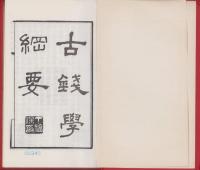 古錢學
綱要